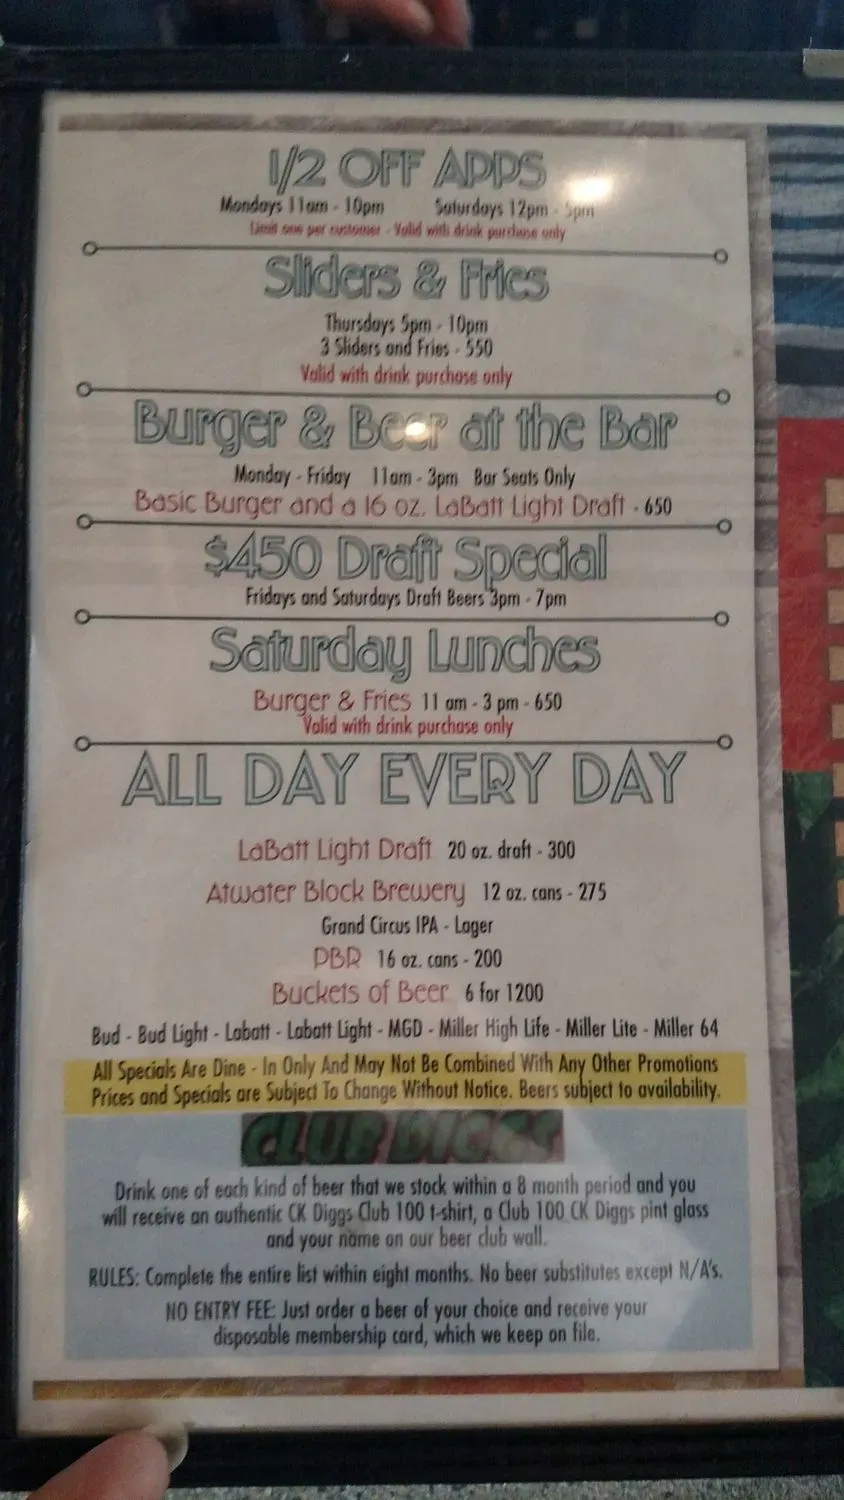 1/2 OFF APPS
Mondays 11am - 10pm Saturdays 12pm - 5pm
Limit one per customer - Valid with drink purchase only
Sliders & Fries
Thursdays 5pm - 10pm
3 Sliders and Fries - 550
Valid with drink purchase only
Burger & Beer at the Bar
Monday - Friday 11am - 3pm Bar Seats Only
Basic Burger and a 16 oz. LaBatt Light Draft - 650
$450 Draft Special
Fridays and Saturdays Draft Beers 3pm - 7pm
Saturday Lunches
Burger & Fries 11 am - 3 pm - 650
Valid with drink purchase only
ALL DAY EVERY DAY
LaBatt Light Draft 20 oz. draft - 300
Atwater Block Brewery 12 oz. cans - 275
Grand Circus IPA - Lager
PBR 16 oz. cans - 200
Buckets of Beer 6 for 1200
Bud - Bud Light - Labatt - Labatt Light - MGD - Miller High Life - Miller Lite - Miller 64
All Specials Are Dine - In Only And May Not Be Combined With Any Other Promotions
Prices and Specials are Subject To Change Without Notice. Beers subject to availability.
CLUB DIGGS
Drink one of each kind of beer that we stock within a 8 month period and you
will receive an authentic CK Diggs Club 100 t-shirt, a Club 100 CK Diggs pint glass
and your name on our beer club wall.
RULES: Complete the entire list within eight months. No beer substitutes except N/A's.
NO ENTRY FEE: Just order a beer of your choice and receive your
disposable membership card, which we keep on file.